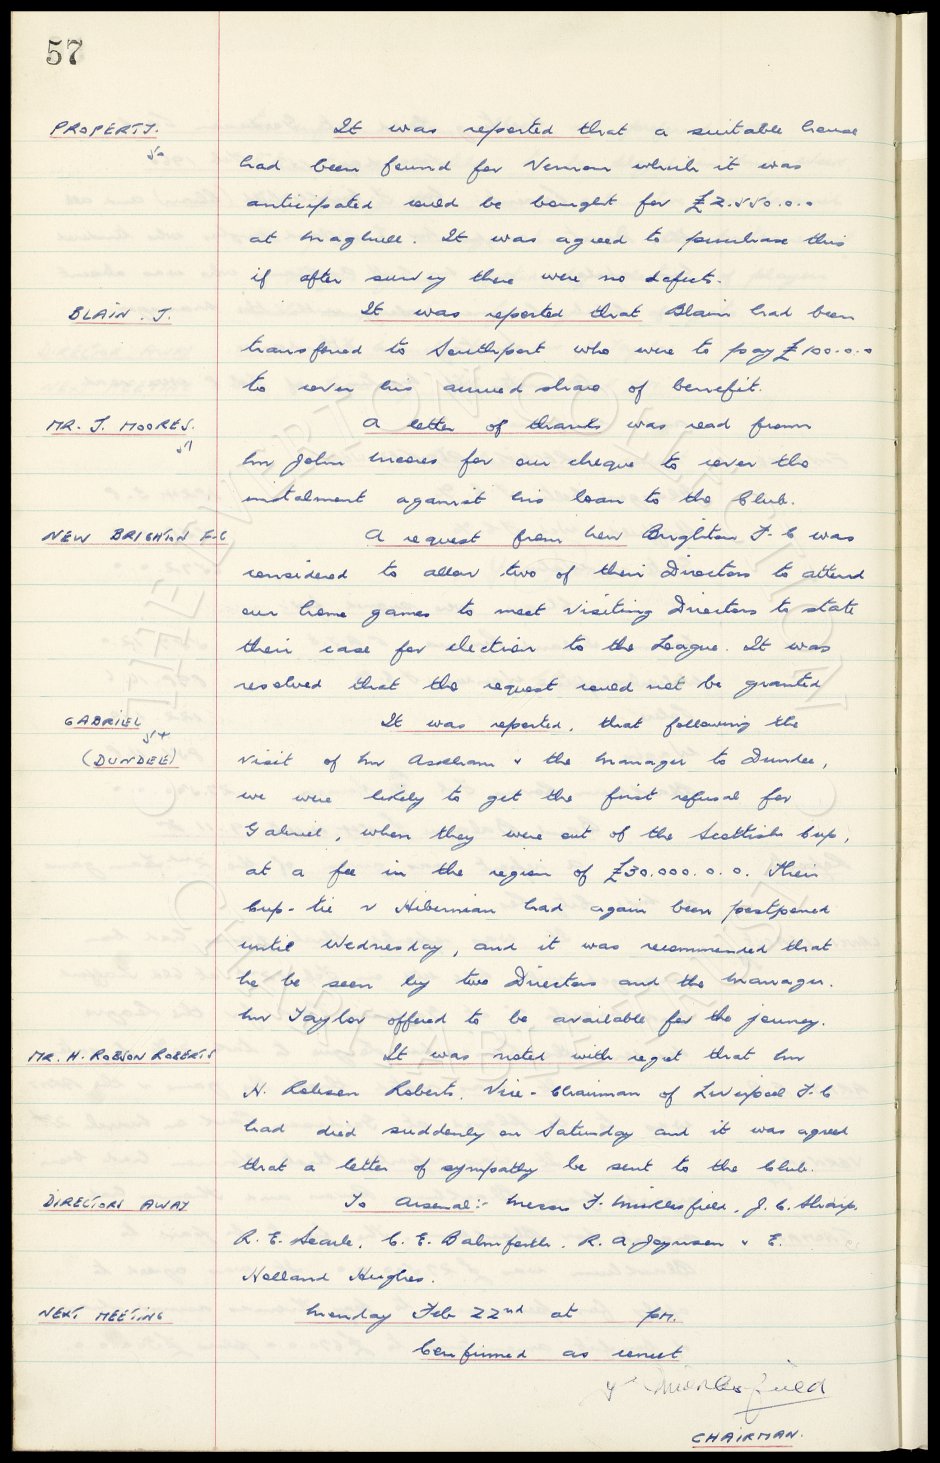 57
PROPERTY. It was reported that a suitable house
had been found for Vernon which it was
anticipated could be bought for £2.550.0.0
at Maghull. It was agreed to purchase this
if after survey there were no defects.
BLAIN. J. It was reported that Blain had been
transferred to Southport who were to pay £100.0.0
to cover his accrued share of benefit.
MR. J. MOORES. A letter of thanks was read from
Mr John Moores for our cheque to cover the
instalment against his loan to the Club.
NEW BRIGHTON F.C A request from New Brighton F.C was
considered to allow two of their Directors to attend
our home games to meet visiting Directors to state
their case for election to the League. It was
resolved that the request could not be granted
GABRIEL It was reported, that following the
(DUNDEE) visit of Mr Askham & the Manager to Dundee,
we were likely to get the first refusal for
Gabriel, when they were out of the Scottish Cup,
at a fee in the region of £30.000.0.0. Their
Cup-tie v Hibernian had again been postponed
until Wednesday, and it was recommended that
he be seen by two Directors and the Manager.
Mr Taylor offered to be available for the journey.
MR. H. ROBSON ROBERTS It was noted with regret that Mr
H. Robson Roberts, Vice-Chairman of Liverpool F.C
had died suddenly on Saturday and it was agreed
that a letter of sympathy be sent to the Club.
DIRECTORS AWAY To Arsenal:- Messrs F. Micklesfield, J. C. Sharp,
R. E. Searle, C. E. Balmforth, R. A. Joynson & E.
Holland Hughes.
NEXT MEETING Monday Feb 22nd at PM.
Confirmed as correct
CHAIRMAN.